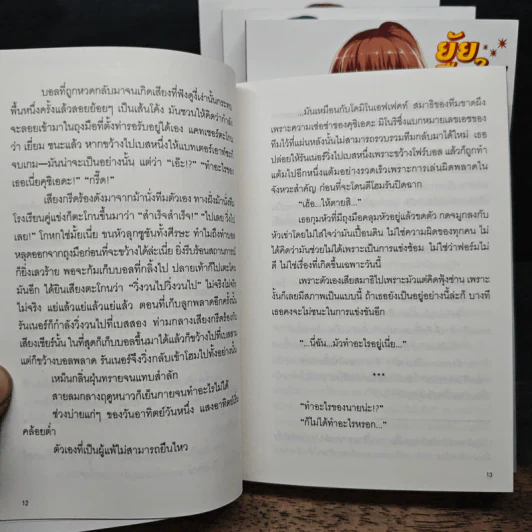 ยัย
บอลที่ถูกหวดกลับมาจนเกิดเสียงที่ฟังดูงี่เง่านั้นกระทบ
พื้นหนึ่งครั้งแล้วลอยย้อยๆ เป็นเส้นโค้ง มันชวนให้คิดว่ากำลัง
จะลอยเข้ามาในถุงมือที่ตั้งท่ารอรับอยู่ได้เอง แคทเชอร์ตะโกน
ว่า เยี่ยม ชนะแล้ว หากขว้างไปเบสหนึ่งให้แบทเตอร์เอาต์ละก็
จบเกม—มันน่าจะเป็นอย่างนั้น แต่ว่า "เอ๊ะ!?" "ทำอะไรของ
เธอเนี่ยคุชิเอดะ!" "กรี๊ด!"
เสียงกรีดร้องดังมาจากม้านั่งทีมตัวเอง ทางฝั่งม้านั่ง
โรงเรียนคู่แข่งก็ตะโกนขึ้นมาว่า "สำเร็จสำเร็จ!" "ไปเลย วิ่งไป
เลย!" โกหกใช่มั้ยเนี่ย ขนหัวลุกซู่ซันทั้งศีรษะ ทำไม
หลุดออกจากถุงมือก่อนที่จะขว้างได้ล่ะเนี่ย ยิ่งรีบร้อนสถานการณ์
ก็ยิ่งเลวร้าย พอจะก้มเก็บบอลที่กลิ้งไป ปลายเท้าก็ไปเตะโดน
มันอีก ได้ยินเสียงตะโกนว่า "วิ่งวนไปวิ่งวนไป" ไม่จริงไม่จริง
ไม่จริง แย่แล้วแย่แล้วแย่แล้ว ตอนที่เก็บลูกพลาดอีกครั้งนั้น
รันเนอร์ก็กำลังวิ่งวนไปที่เบสสอง ท่ามกลางเสียงกรีดร้องกับ
เสียงเชียร์นั้น ในที่สุดก็เก็บบอลขึ้นมาได้แล้วก็ขว้างไปที่เบสสาม
แต่ก็ขว้างบอลพลาด รันเนอร์จึงวิ่งกลับเข้าโฮมไปทั้งอย่างนั้น
เหม็นกลิ่นฝุ่นทรายจนแทบสำลัก
สายลมกลางฤดูหนาวก็เย็นกายจนทำอะไรไม่ได้
ช่วงบ่ายแก่ๆ ของวันอาทิตย์วันหนึ่ง แสงอาทิตย์เริ่ม
คล้อยต่ำ
ตัวเองที่เป็นผู้แพ้ไม่สามารถยืนไหว
12
...มันเหมือนกับโดมิโนเอฟเฟคท์ สมาธิของทีมขาดผึง
เพราะความเซ่อซ่าของคุชิเอดะ มิโนริซึ่งแบกหมายเลขเอซของ
ทีมไว้ที่แผ่นหลังนั้นไม่สามารถรวบรวมทีมกลับมาได้ใหม่ เธอ
ปล่อยให้รันเนอร์วิ่งไปเบสหนึ่งเพราะขว้างโฟร์บอล แล้วก็ถูกทำ
แต้มไปอีกหนึ่งแต้มอย่างรวดเร็วเพราะการเล่นผิดพลาดใน
จังหวะสำคัญ ก่อนที่จะโดนตีโฮมรันปิดฉาก
"เฮ้อ...ให้ตายสิ..."
เธอกุมหัวที่มีถุงมือคลุมหัวอยู่แล้วขดตัว กดจมูกลงกับ
หัวเข่าโดยไม่ใส่ใจว่ามันเปื้อนดิน ไม่ใช่ความผิดของทุกคน ไม่
ได้คิดว่ามันช่วยไม่ได้เพราะเป็นการแข่งซ้อม ไม่ใช่ว่าฟอร์มไม่
ดี ไม่ใช่เรื่องที่เกิดขึ้นเฉพาะวันนี้
เพราะตัวเองเสียสมาธิไปเพราะมัวแต่คิดฟุ้งซ่าน เพราะ
งั้นก็เลยมีสภาพเป็นแบบนี้ ถ้าเธอยังเป็นอยู่อย่างนี้ละก็ บางที
เธอคงจะไม่ชนะในการแข่งขันอีก
"...นี่ฉัน...มัวทำอะไรอยู่เนี่ย..."
***
"ทำอะไรของนายน่ะ!?"
"ก็ไม่ได้ทำอะไรหรอก..."
13